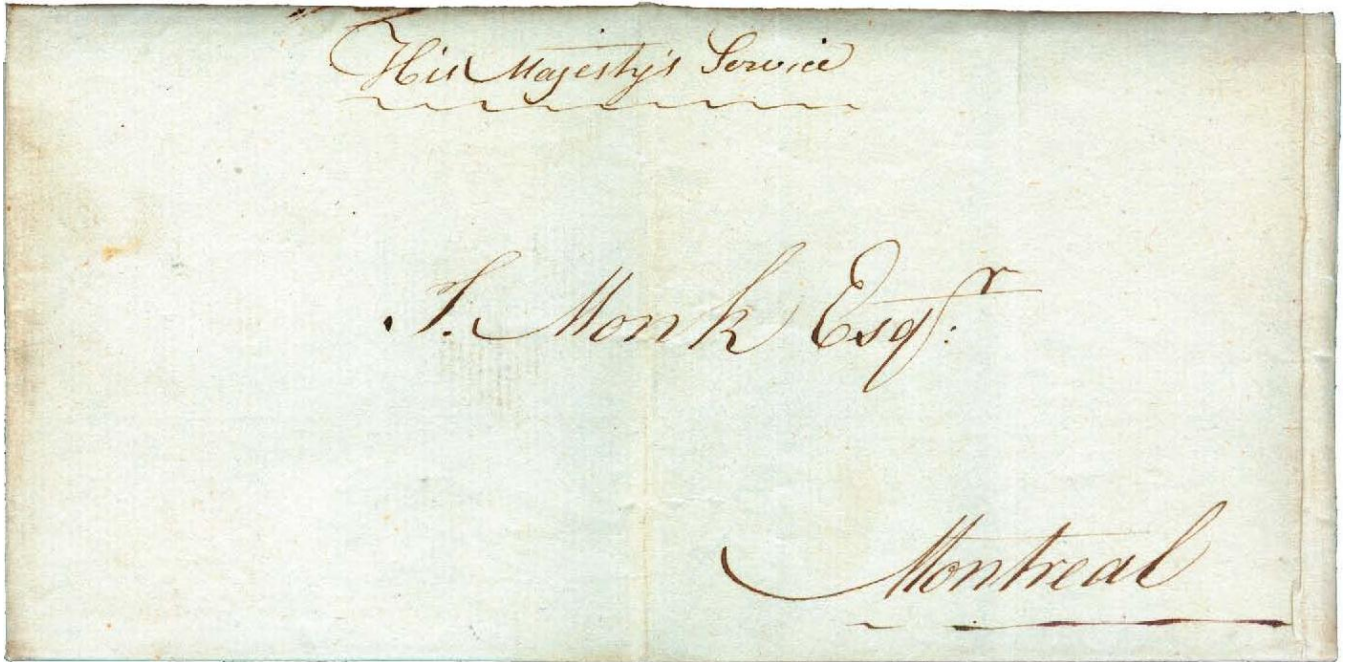 His Majesty's Service
S. Monk Esqr.
Montreal